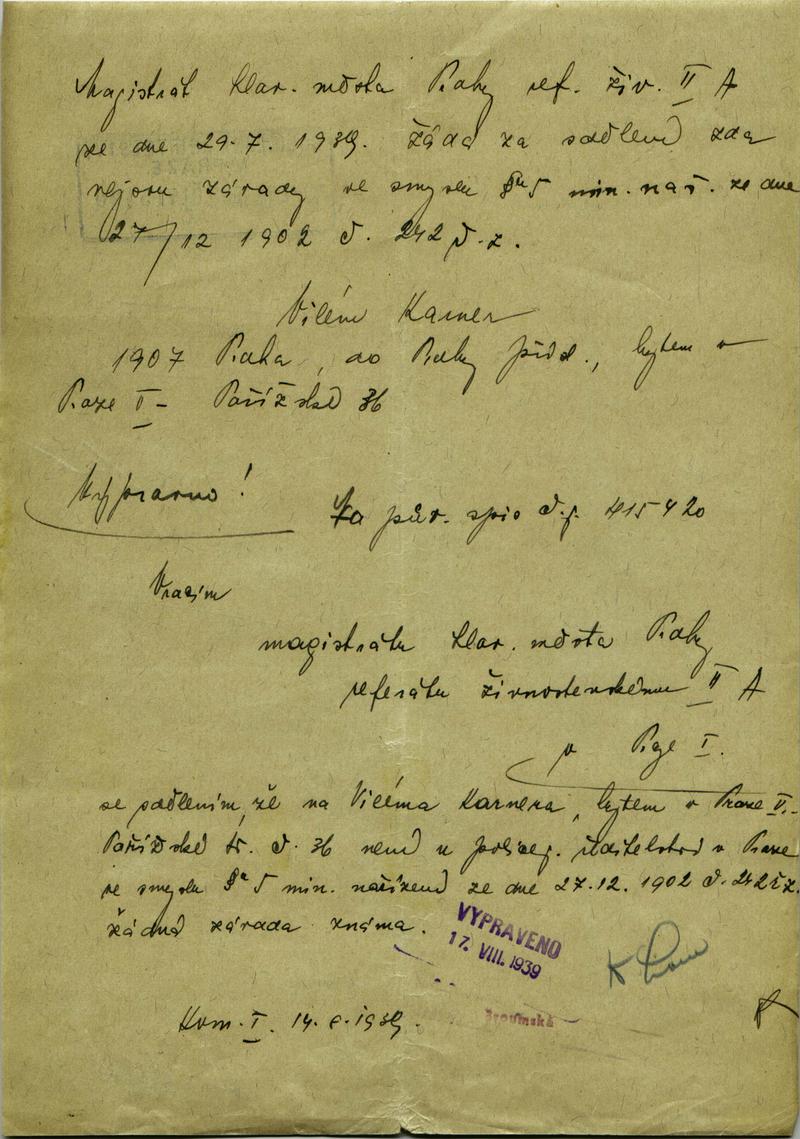 Magistrát hlav. města Prahy ref. živ. II A
ze dne 29.7. 1939. žádá za sdělení zda
nejsou závady ve smyslu §u 5 min. nař. ze dne
27/12 1902 č. 242 ř.z.
Vilém Karner
1907 Praha, do Prahy přísl., bytem v
Praze V - Pařížská 36
Vypraveno!
Za pův. spis č.j. 415420
Vracím
magistrátu hlav. města Prahy
referátu živnostenskému II A
v Praze I.
se sdělením, že na Viléma Karnera, bytem v Praze V.-
Pařížská tř. č. 36 není u policej. ředitelství v Praze
ve smyslu §u 5 min. nařízení ze dne 27.12. 1902 č. 242 ř.z.
žádná závada známa.
VYPRAVENO
17. VIII. 1939
Kom. I. 14.8.1939.